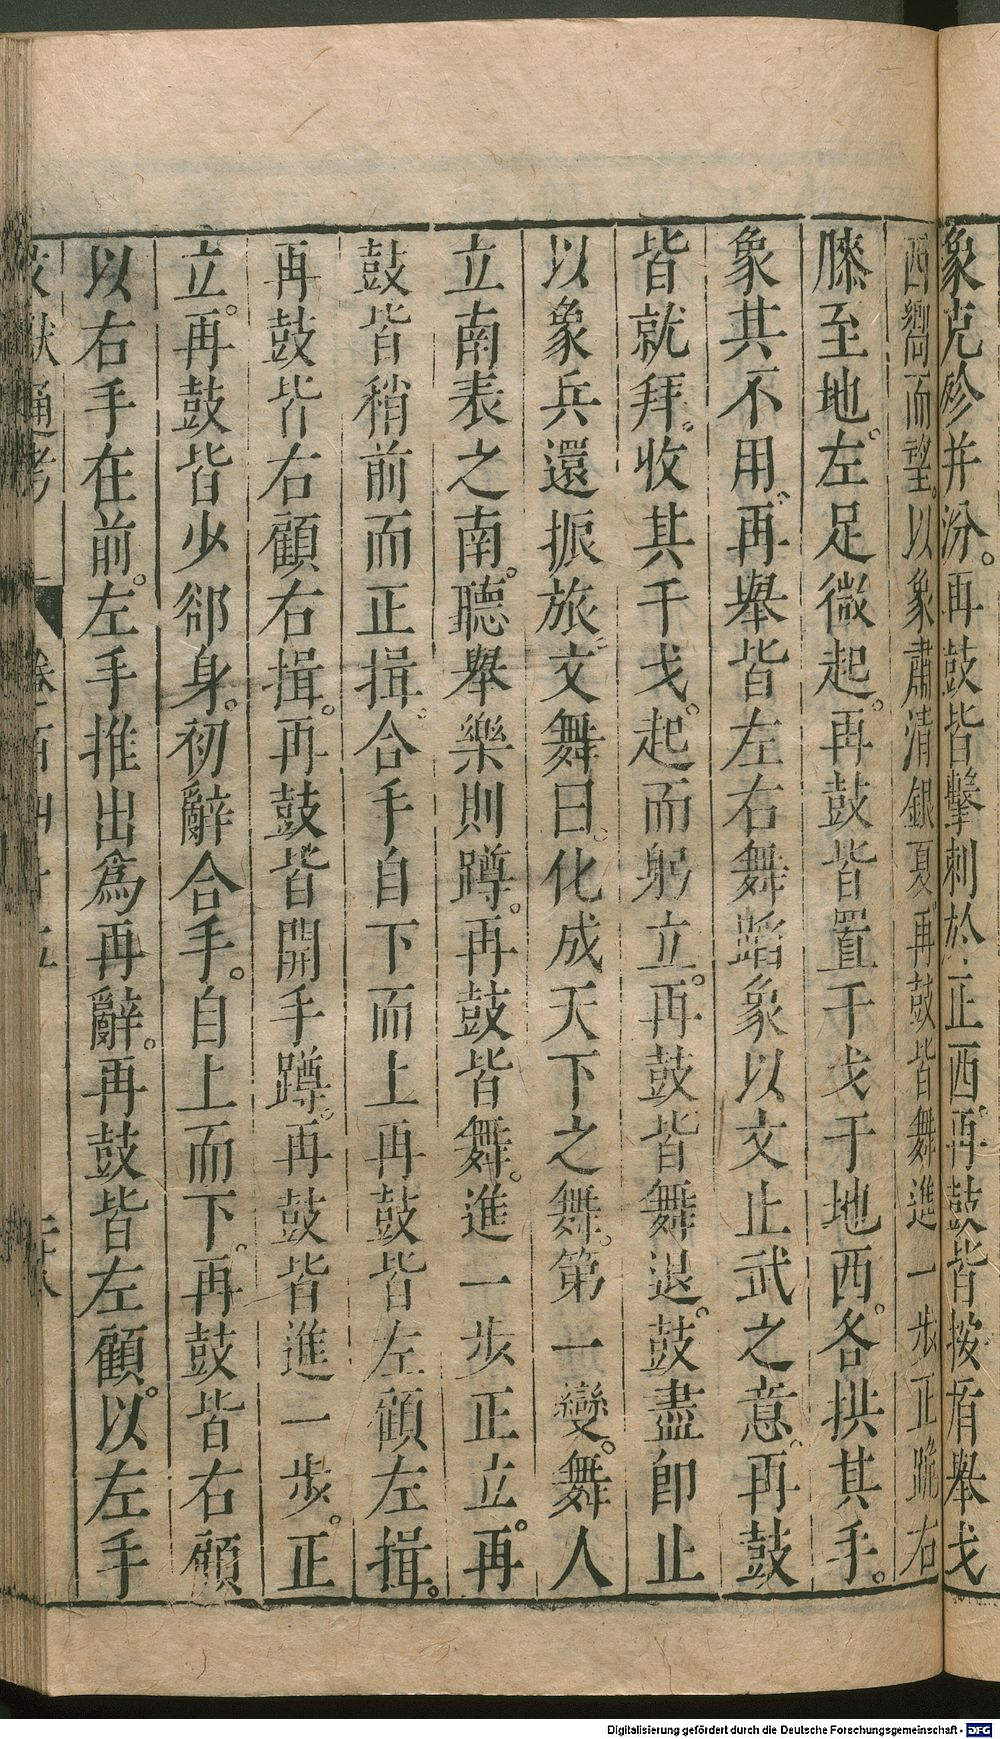 象克殄并汾。再鼓皆擊刺於正西。再鼓皆按盾舉戈
西嚮而望。以象肅清銀夏。再鼓皆舞進一步正跪右
膝至地。左足微起。再鼓皆置干戈于地西。各拱其手。
象其不用。再舉皆左右舞蹈象以文止武之意。再鼓
皆就拜。收其干戈。起而躬立。再鼓皆舞退。鼓盡即止
以象兵還振旅。文舞曰。化成天下之舞。第一變。舞人
立南表之南。聽舉樂則蹲。再鼓皆舞。進一步正立。再
鼓皆稍前而正揖。合手自下而上再鼓皆左顧左揖。
再鼓皆右顧右揖。再鼓皆開手蹲。再鼓皆進一步。正
立。再鼓皆少郤身。初辭合手。自上而下。再鼓皆右顧
以右手在前。左手推出為再辭。再鼓皆左顧。以左手
文獻通考 卷百四十五 二十八
Digitalisierung gefördert durch die Deutsche Forschungsgemeinschaft - DFG